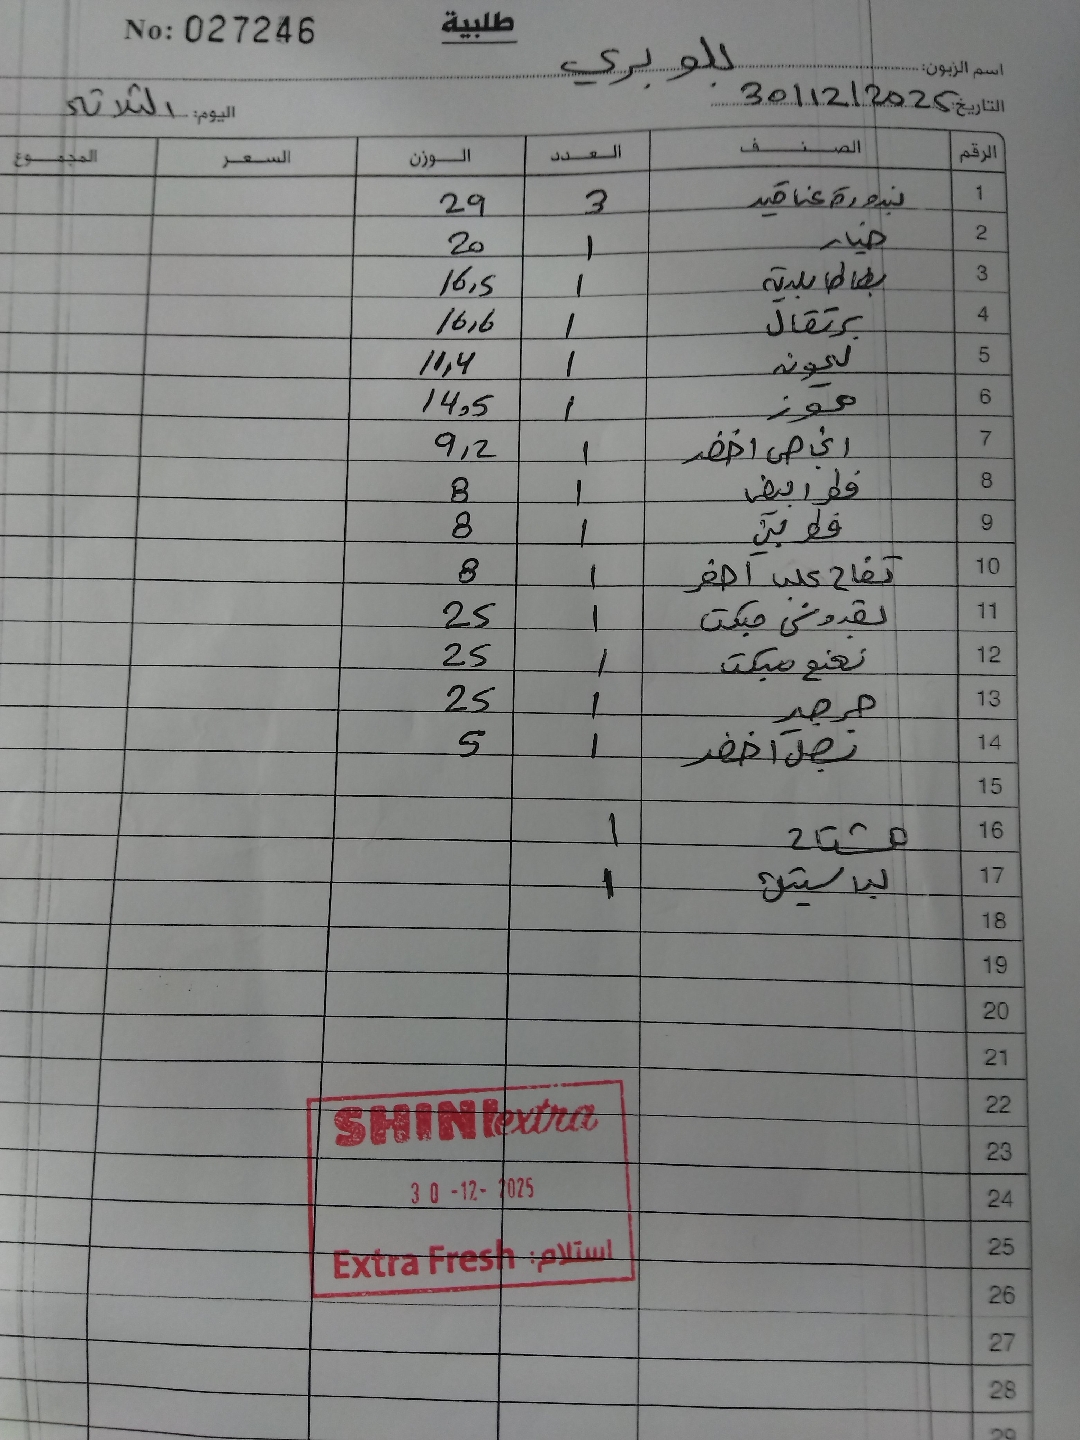 طلبية
No: 027246
اسم الزبون: بلو بري
التاريخ: 30/12/2025
اليوم: الثلاثى
الرقم الصنف العدد الوزن السعر المجموع
1 بندورة عناقيد 3 29
2 خيار 1 20
3 بطاطا بلدية 1 16,5
4 برتقال 1 16,6
5 ليمونه 1 11,4
6 موز 1 14,5
7 انجاص اخضر 1 9,2
8 فطر ابيض 1 8
9 فطر بني 1 8
10 تفاح علب احمر 1 8
11 بقدونس مبكت 1 25
12 نعنع مبكت 1 25
13 جرجير 1 25
14 بصل اخضر 1 5
15
16 مشتاح 1
17 1
18
19
20
21
22
23
24
25
26
27
28
29
SHINI extra
30-12-2025
Extra Fresh استلام: